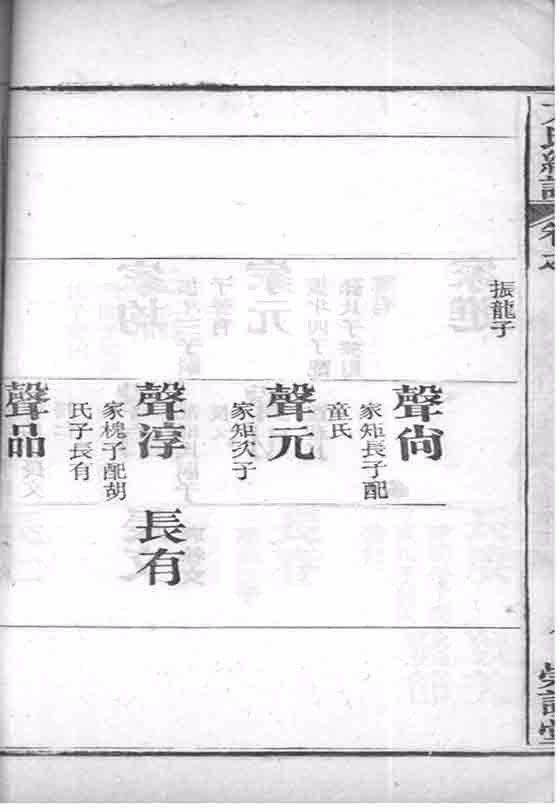 振龍子
聲尚
家矩長子配
童氏
聲元
家矩次子
聲淳
家槐子配胡
氏子長有
長有
聲品